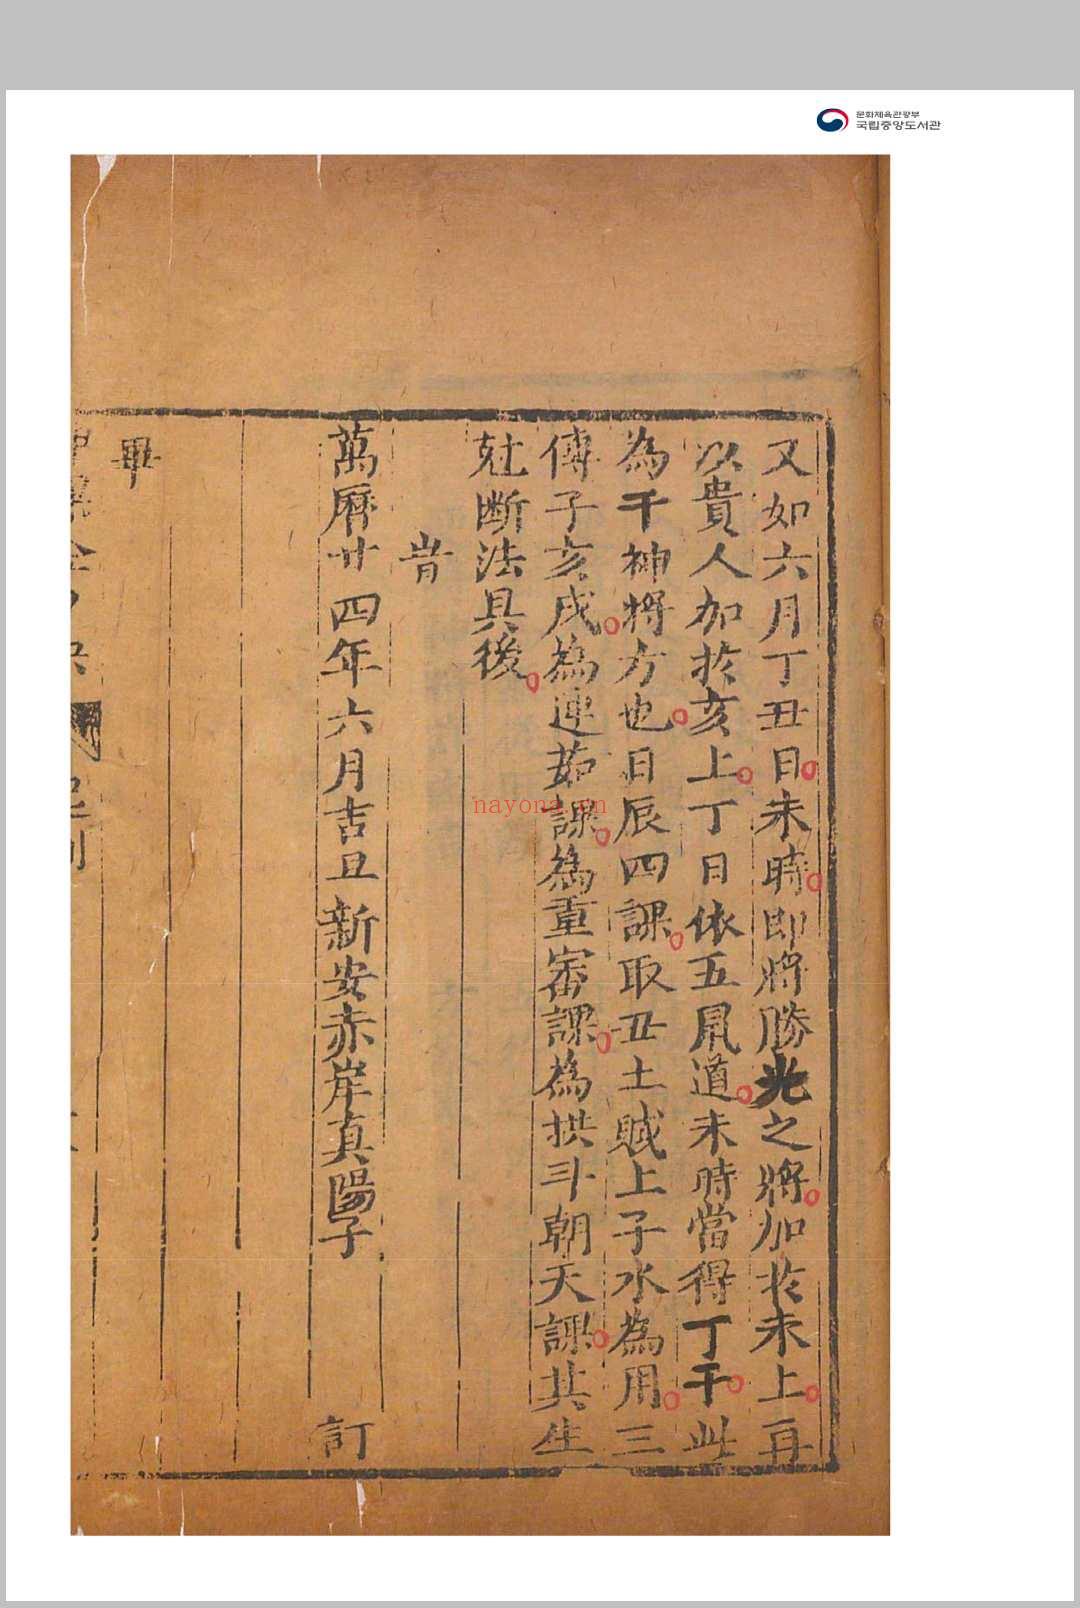 문화체육관광부
국립중앙도서관
又如六月丁丑日未時即將勝光之將加於未上再
以貴人加於亥上丁日依五鼠道未時當得丁干此
為干神將方也日辰四課取丑土賊上子水為用三
傳子亥戌為連茹課為重審課為拱斗朝天課其生
尅断法具後
昔
萬曆廿四年六月吉旦新安赤岸真陽子 訂
畢
nayona.cn